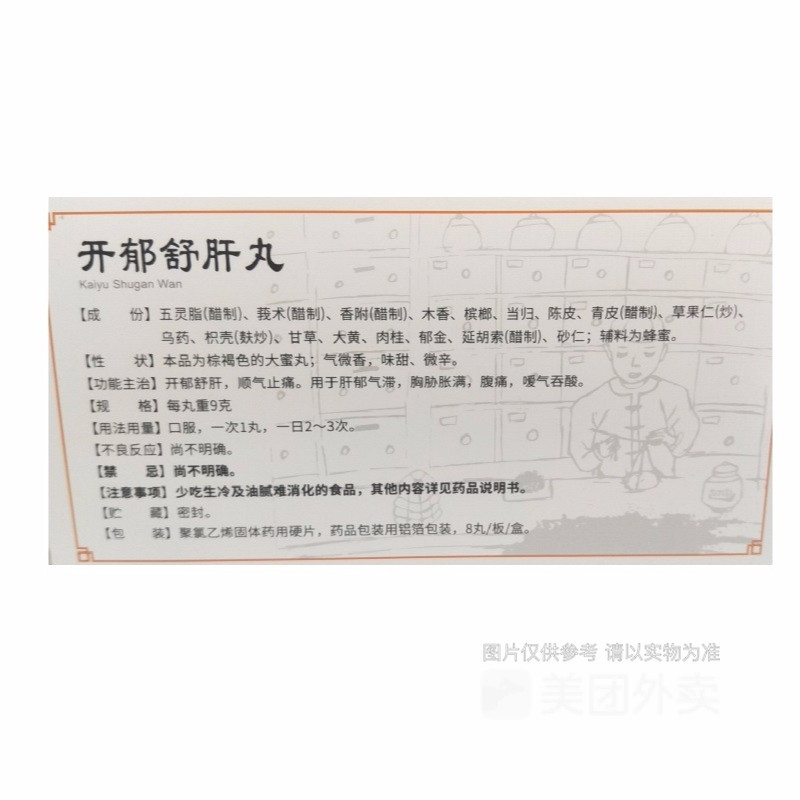 开郁舒肝丸
Kaiyu Shugan Wan
【成 份】五灵脂(醋制)、莪术(醋制)、香附(醋制)、木香、槟榔、当归、陈皮、青皮(醋制)、草果仁(炒)、
乌药、枳壳(麸炒)、甘草、大黄、肉桂、郁金、延胡索(醋制)、砂仁；辅料为蜂蜜。
【性 状】本品为棕褐色的大蜜丸；气微香，味甜、微辛。
【功能主治】开郁舒肝，顺气止痛。用于肝郁气滞，胸胁胀满，腹痛，嗳气吞酸。
【规 格】每丸重9克
【用法用量】口服，一次1丸，一日2～3次。
【不良反应】尚不明确。
【禁 忌】尚不明确。
【注意事项】少吃生冷及油腻难消化的食品，其他内容详见药品说明书。
【贮 藏】密封。
【包 装】聚氯乙烯固体药用硬片，药品包装用铝箔包装，8丸/板/盒。
图片仅供参考 请以实物为准
美团外卖